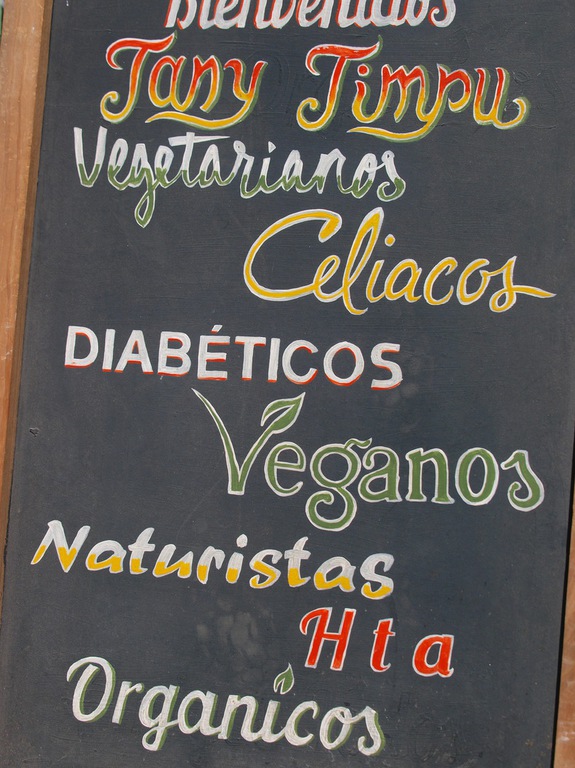 Bienvenidos
Tany Timpu
Vegetarianos
Celiacos
DIABÉTICOS
Veganos
Naturistas
Hta
Organicos